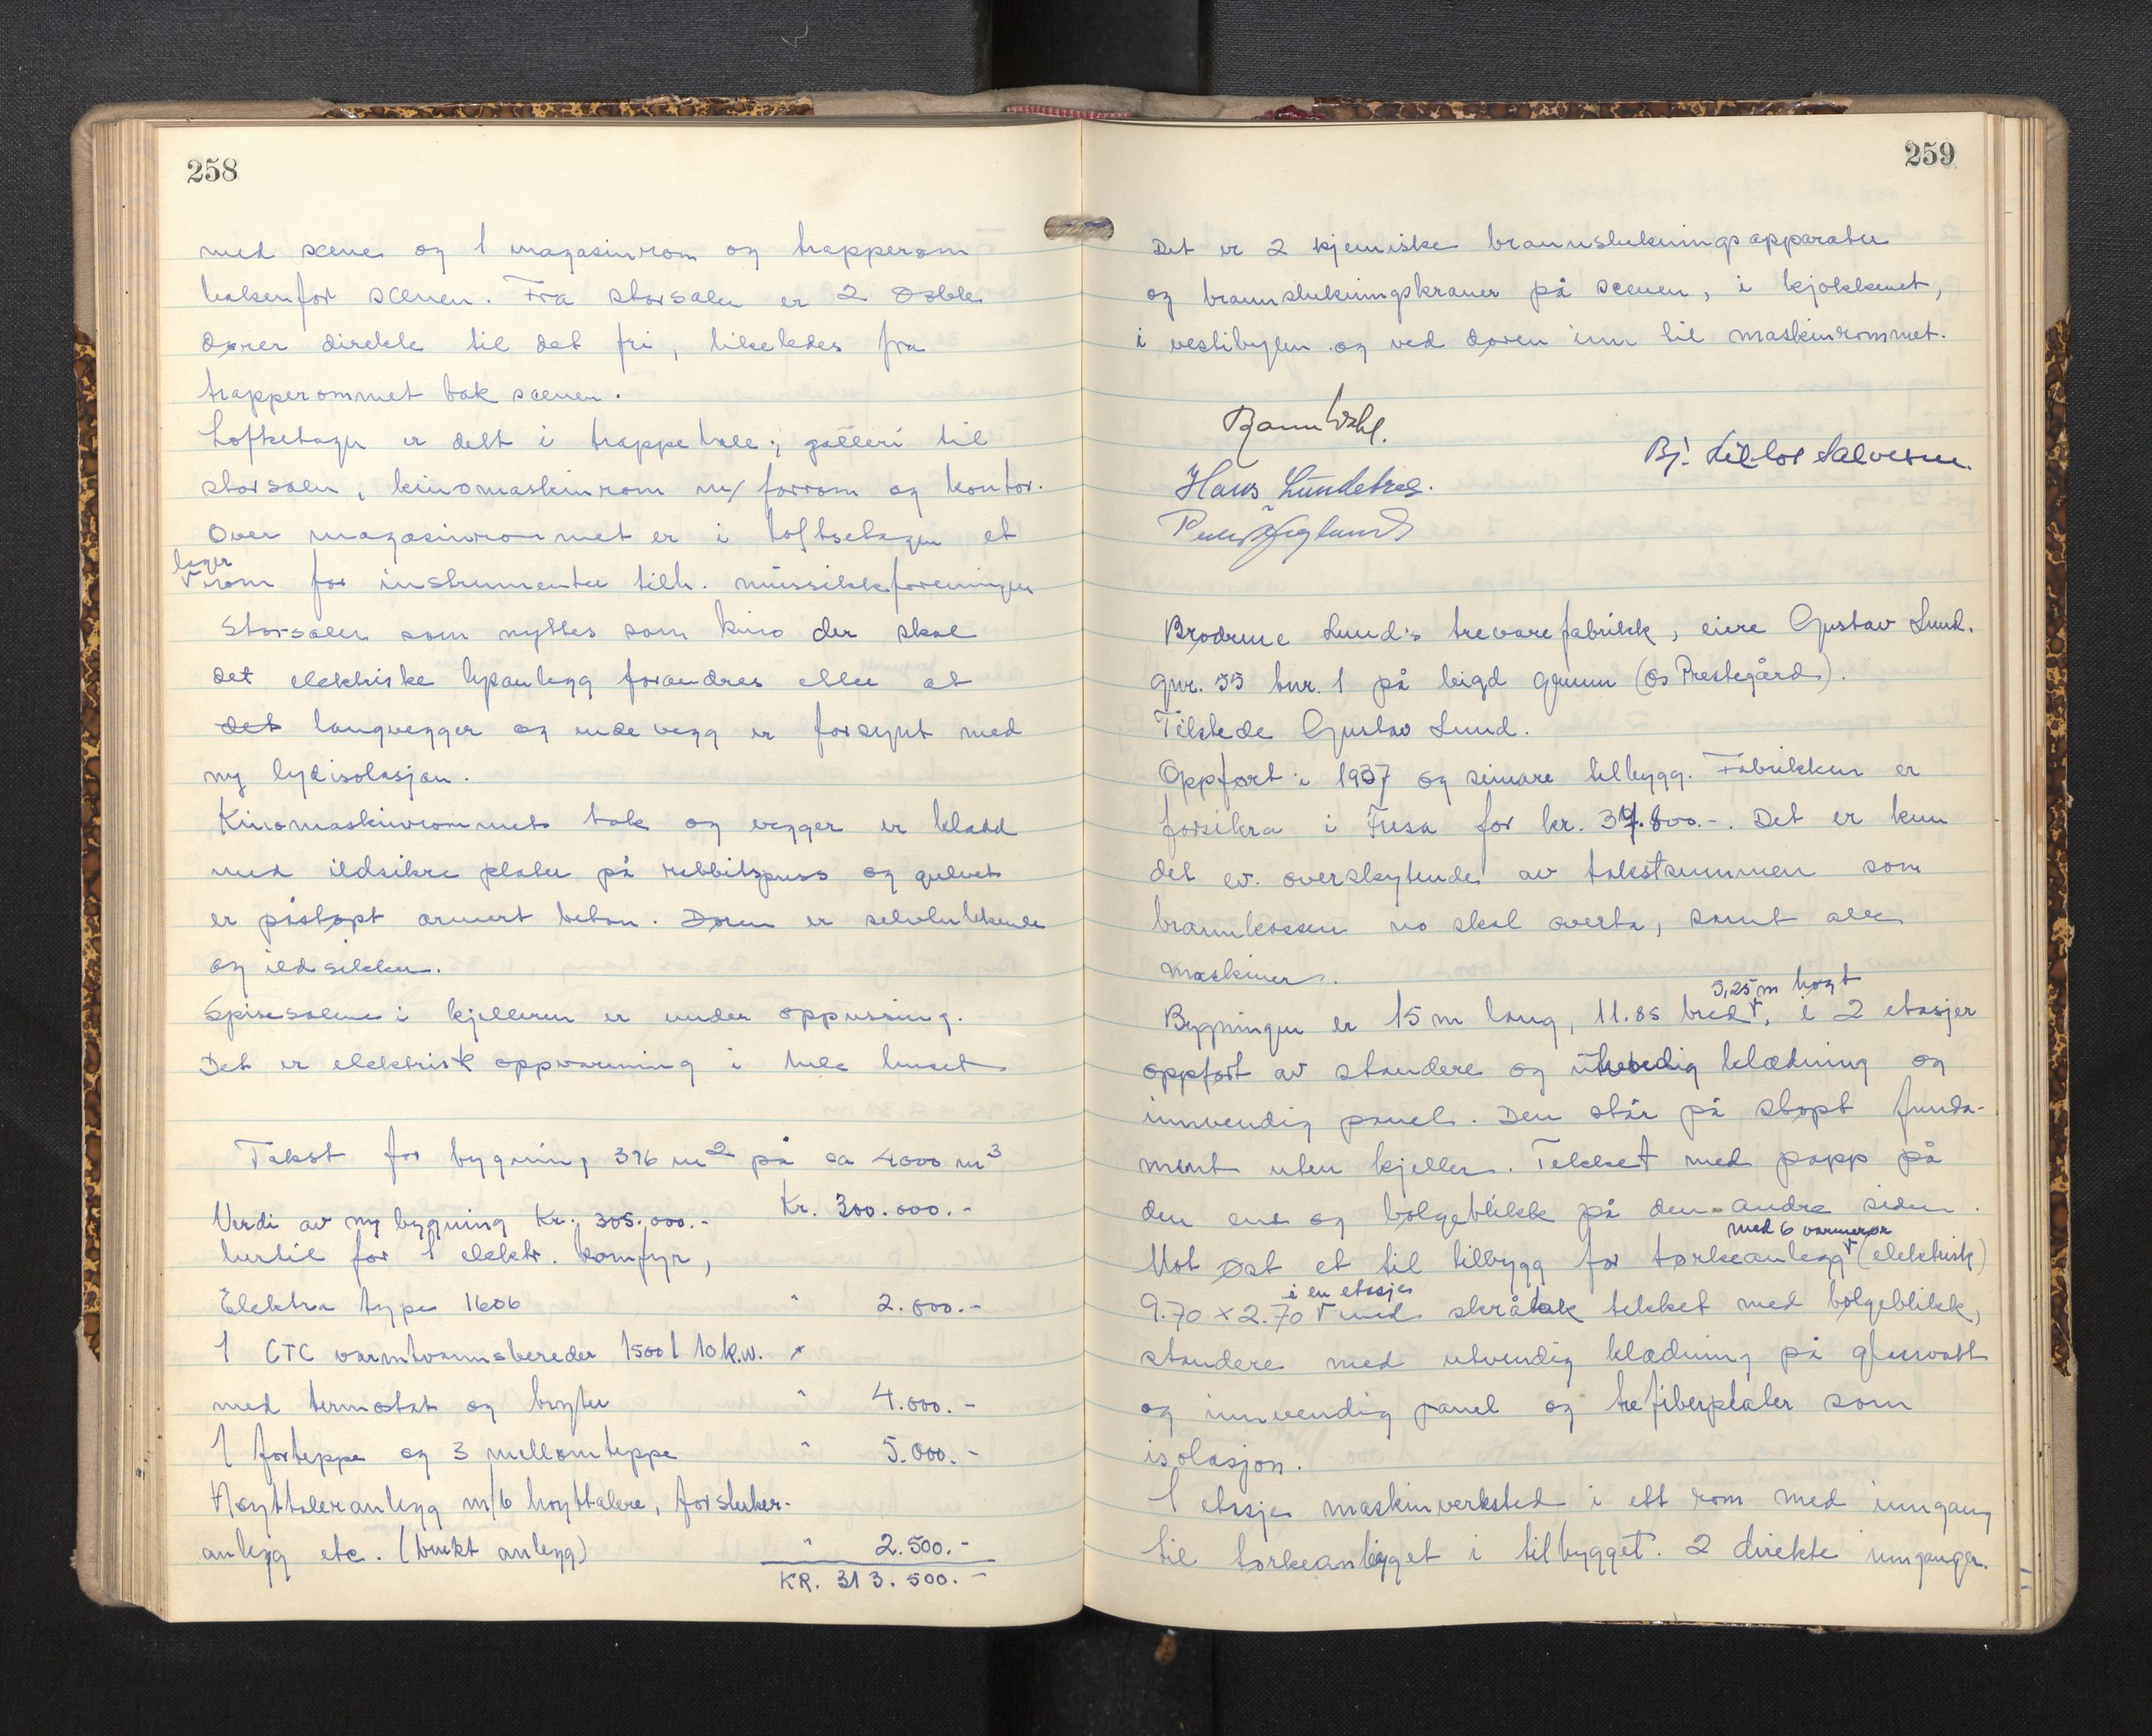 258
med scene og 1 magasinrom og trapperom
bakenfor scenen. Fra storsalen er 2 doble
dører direkte til det fri, likeledes fra
trapperommet bak scenen.
Loftsetagen er delt i trappehall, galleri til
storsalen, kinomaskinrom m/ forrom og kontor.
Over magasinrommet er i loftsetagen et
lager
rom for instrumenter tilh. musikkforeningen
Storsalen som nyttes som kino der skal
det elektriske lysanlegg forandres etter at
det langvegger og endevegg er forsynt med
ny lydisolasjon.
Kinomaskinrommets tak og vegger er kledd
med ildsikre plater på rabbitzpuss og gulvet
er påstøpt armert betong. Døren er selvlukkende
og ildsikker.
Spisesalene i kjelleren er under oppussing.
Det er elektrisk oppvarming i hele huset
Takst for bygning 376 m² på ca 4000 m³
Verdi av ny bygning Kr. 305.000.- Kr. 300.000.-
hertil for 1 elektr. komfyr,
Elektra type 1606 " 2.000.-
1 CTC varmtvannsbereder 1500 l 10 k.w.
med termostat og bryter " 4.000.-
1 forteppe og 3 mellomteppe " 5.000.-
Høyttaleranlegg m/6 høyttalere, forsterker-
anlegg etc. (brukt anlegg) " 2.500.-
KR. 313.500.-
259
Det er 2 kjemiske brannslukningsapparater
og brannslukningskraner på scenen, i kjøkkenet,
i vestibylen og ved døren inn til maskinrommet.
Bj. Lillelos Salvesen.
Hans Lundetræ.
Brødrene Lund's trevarefabrikk, eiere Gustav Lund.
gnr. 55 bnr. 1 på leigd grunn (Os Prestegård).
Tilstede Gustav Lund.
Oppført i 1937 og seinare tilbygg. Fabrikken er
forsikra i Fusa for kr. 37.800.-. Det er kun
det ev. overskytende av takstsummen som
brannkassen no skal overta, samt alle
maskiner.
5,25 m høgt
Bygningen er 15 m lang, 11.85 bred, i 2 etasjer
oppført av standere og utvendig klædning og
innvendig panel. Den står på støpt funda-
ment uten kjeller. Tekket med papp på
den ene og bølgeblikk på den andre siden.
med 6 varmerør
Mot øst et til tilbygg for tørkeanlegg (elektrisk)
i en etasje
9.70 x 2.70 med skråtak tekket med bølgeblikk,
standere med utvendig klædning på glassvatt
og innvendig panel og trefiberplater som
isolasjon.
1 etasje maskinverksted i ett rom med inngang
til tørkeanlegget i tilbygget. 2 direkte innganger.